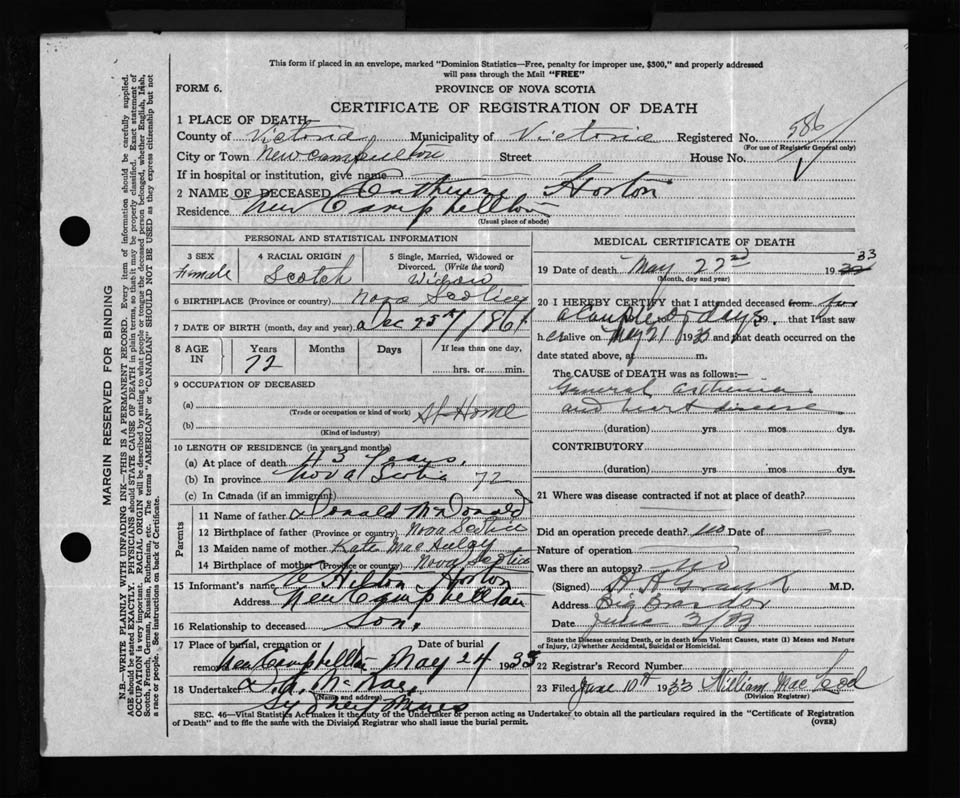 This form if placed in an envelope, marked "Dominion Statistics—Free, penalty for improper use, $300," and properly addressed
will pass through the Mail "FREE"
FORM 6.
PROVINCE OF NOVA SCOTIA
CERTIFICATE OF REGISTRATION OF DEATH
1 PLACE OF DEATH—
County of Victoria Municipality of Victoria Registered No. 586
(For use of Registrar General only)
City or Town New Campbellton Street House No.
If in hospital or institution, give name
2 NAME OF DECEASED Catherine Horton
Residence New Campbellton
(Usual place of abode)
PERSONAL AND STATISTICAL INFORMATION
3 SEX 4 RACIAL ORIGIN 5 Single, Married, Widowed or
Divorced. (Write the word)
Female Scotch Widow
6 BIRTHPLACE (Province or country) Nova Scotia
7 DATE OF BIRTH (month, day and year) Dec 25th 1861
8 AGE IN Years Months Days If less than one day,
72 hrs. or min.
9 OCCUPATION OF DECEASED
(a) At Home
(Trade or occupation or kind of work)
(b)
(Kind of industry)
10 LENGTH OF RESIDENCE (in years and months)
(a) At place of death 43 Years.
(b) In province Nova Scotia 72
(c) In Canada (if an immigrant)
Parents
11 Name of father Donald McDonald
12 Birthplace of father (Province or country) Nova Scotia
13 Maiden name of mother Kate MacAulay
14 Birthplace of mother (Province or country) Nova Scotia
15 Informant's name Hilton Horton
Address New Campbellton
16 Relationship to deceased Son.
17 Place of burial, cremation or Date of burial
removal New Campbellton May 24 1933
18 Undertaker D. A. McRae,
(Name and address)
Sydney Mines
MEDICAL CERTIFICATE OF DEATH
19 Date of death May 22nd 1933
(Month, day and year)
20 I HEREBY CERTIFY that I attended deceased from for
a couple of days 19 that I last saw
her alive on May 21 1933 and that death occurred on the
date stated above, at m.
The CAUSE OF DEATH was as follows:—
General asthenia
and heart disease
(duration) yrs mos dys.
CONTRIBUTORY
(duration) yrs mos dys.
21 Where was disease contracted if not at place of death?
Did an operation precede death? no Date of
Nature of operation
Was there an autopsy? no
(Signed) M.D.
Address Big Bras d'Or
Date June 3/33
State the Disease causing Death, or in death from Violent Causes, state (1) Means and Nature
of Injury, (2) whether Accidental, Suicidal or Homicidal.
22 Registrar's Record Number
23 Filed June 10th 1933 William MacLeod
(Division Registrar)
SEC. 46—Vital Statistics Act makes it the duty of the Undertaker or person acting as Undertaker to obtain all the particulars required in the "Certificate of Registration
of Death" and to file the same with the Division Registrar who shall issue the burial permit. (OVER)
MARGIN RESERVED FOR BINDING
N.B.—WRITE PLAINLY WITH UNFADING INK—THIS IS A PERMANENT RECORD. Every item of information should be carefully supplied.
AGE should be stated EXACTLY. PHYSICIANS should STATE CAUSE OF DEATH in plain terms, so that it may be properly classified. Exact statement of
OCCUPATION is very important. RACIAL ORIGIN will be described by stating to what people or tongue the deceased person belonged, whether English, Irish,
Scotch, French, German, Russian, Ruthenian, etc. The terms "AMERICAN" or "CANADIAN" SHOULD NOT BE USED as they express citizenship but not
a race or people. See instructions on back of Certificate.